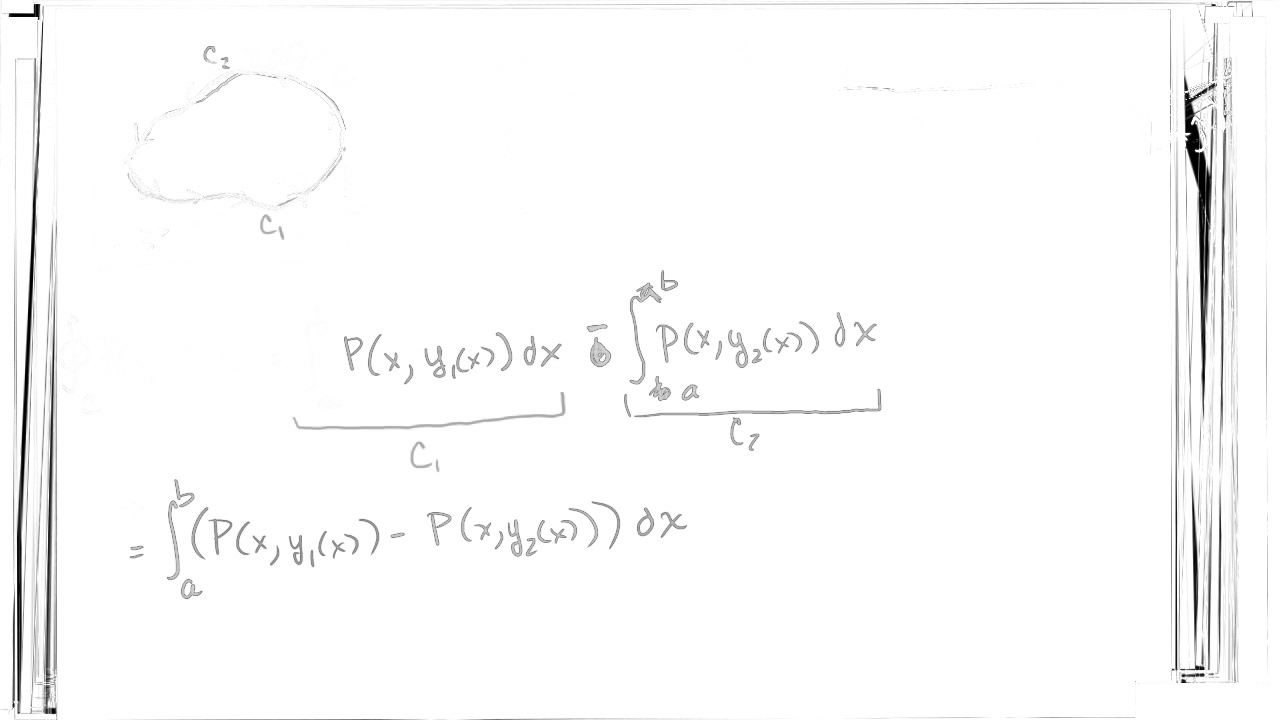 C₂
C₁
P(x, y₁(x)) dx - ∫_a^b P(x, y₂(x)) dx
C₁ C₂
= ∫_a^b (P(x, y₁(x)) - P(x, y₂(x))) dx